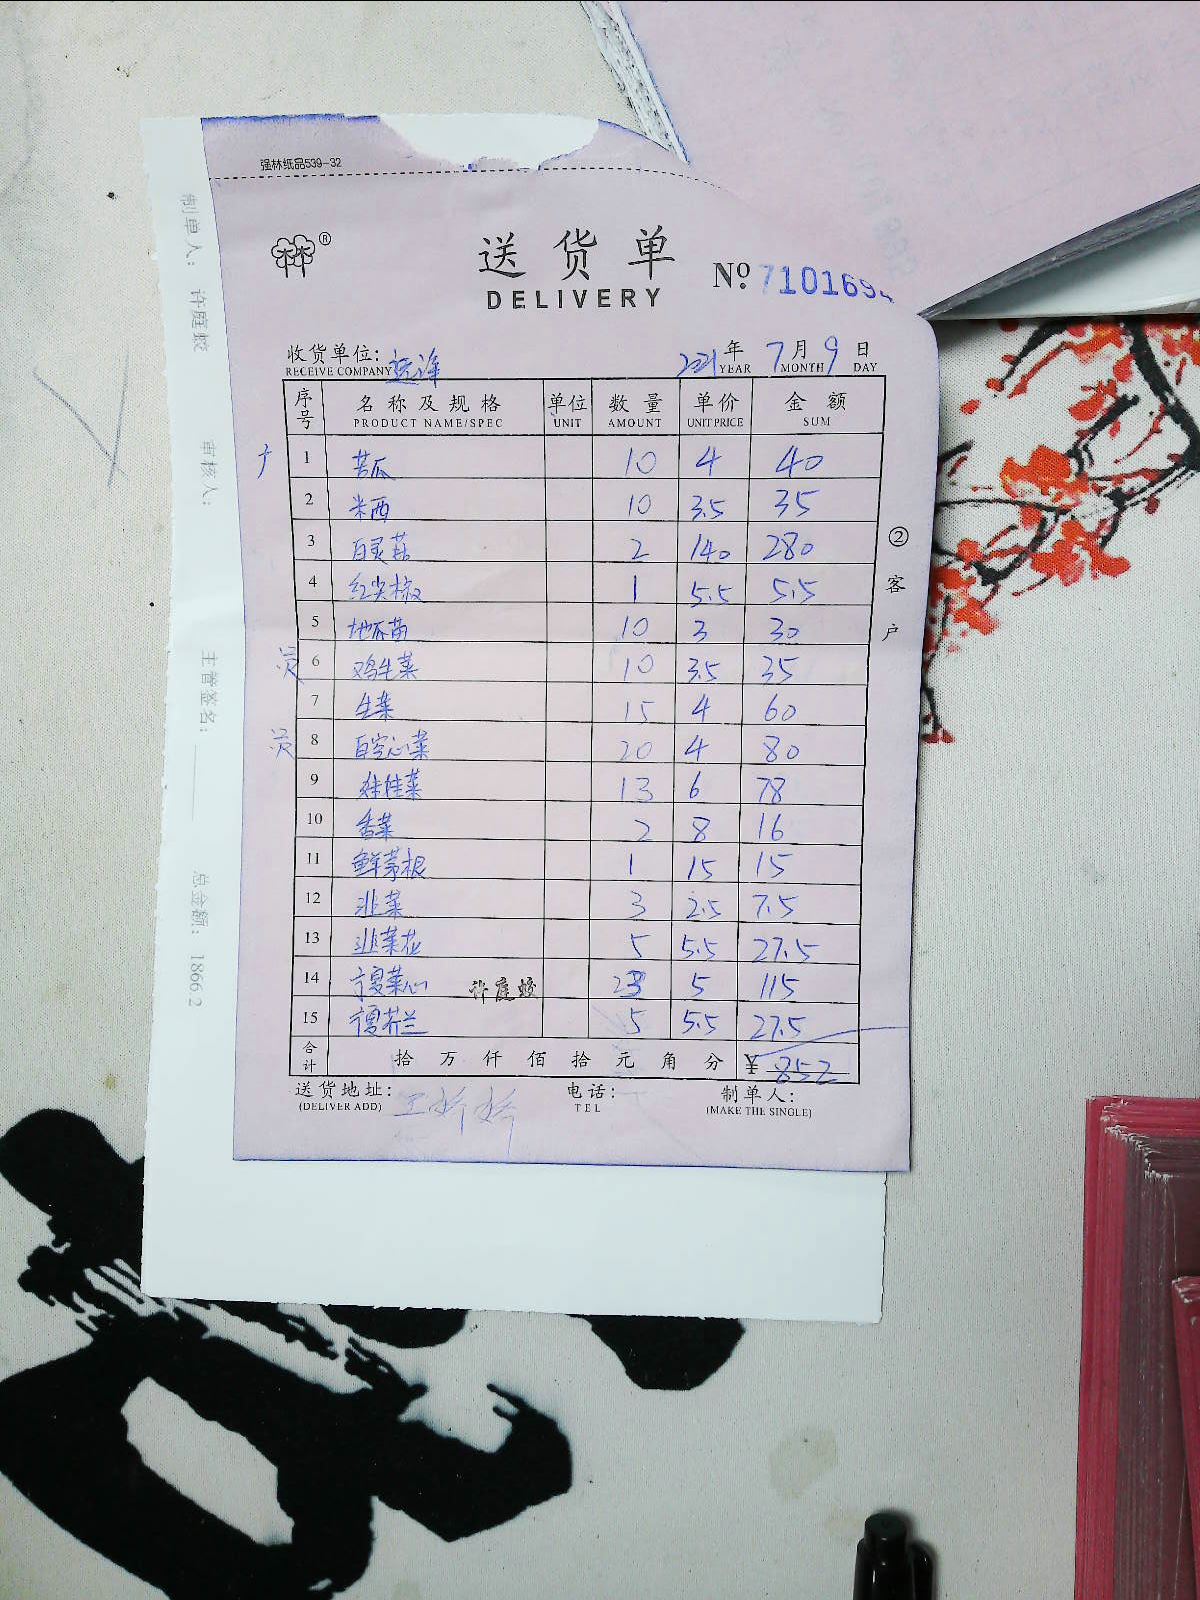 强林纸品539-32
送货单
DELIVERY
No. 710169
收货单位: 
RECEIVE COMPANY
2021年 7月 9日
YEAR MONTH DAY
序号 名称及规格 单位 数量 单价 金额
PRODUCT NAME/SPEC UNIT AMOUNT UNIT PRICE SUM
1 苦瓜 10 4 40
2 米西 10 3.5 35
3 白灵菇 2 140 280
4 红尖椒 1 5.5 5.5
5 10 3 30
6 鸡生菜 10 3.5 35
7 生菜 15 4 60
8 白空心菜 20 4 80
9 娃娃菜 13 6 78
10 香菜 2 8 16
11 鲜茅根 1 15 15
12 韭菜 3 2.5 7.5
13 韭菜花 5 5.5 27.5
14 宁夏菜心 许庭蛟 23 5 115
15 宁夏芥兰 5 5.5 27.5
合计 拾万仟佰拾元角分 ¥ 852
送货地址: 电话: 制单人:
(DELIVER ADD) TEL (MAKE THE SINGLE)
②客户
制单人: 许庭蛟
审核人:
主管签名:
总金额: 1866.2